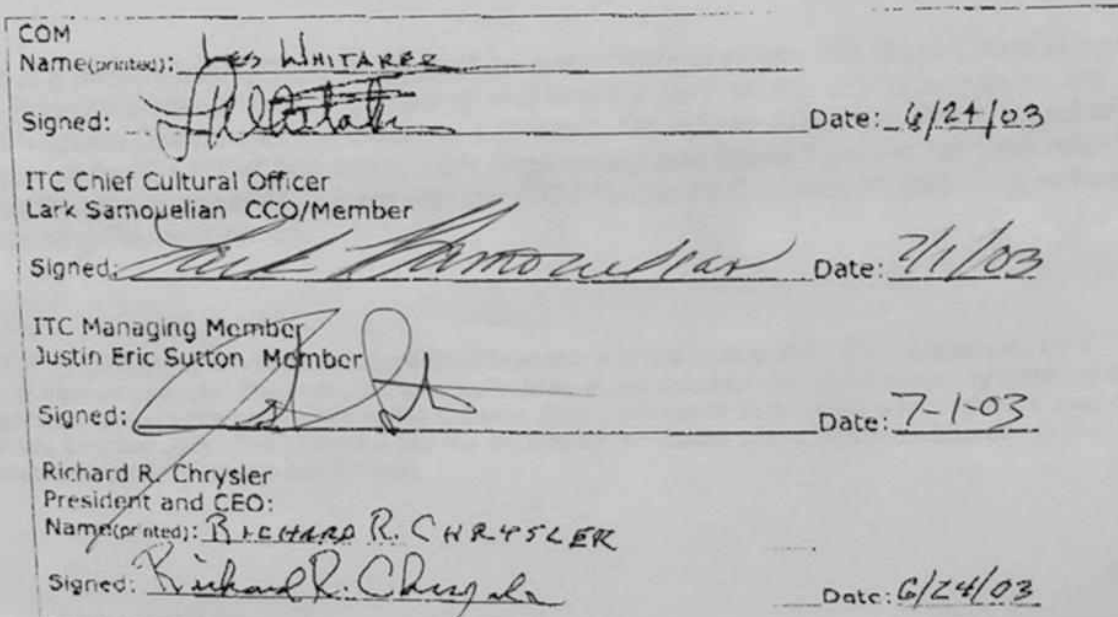 COM
Name(printed): Les WHITAKER
Signed: Date: 6/24/03
ITC Chief Cultural Officer
Lark Samouelian CCO/Member
Signed: Lark Samouelian Date: 7/1/03
ITC Managing Member
Justin Eric Sutton Member
Signed: Date: 7-1-03
Richard R. Chrysler
President and CEO:
Name(printed): RICHARD R. CHRYSLER
Signed: Richard R. Chrysler Date: 6/24/03